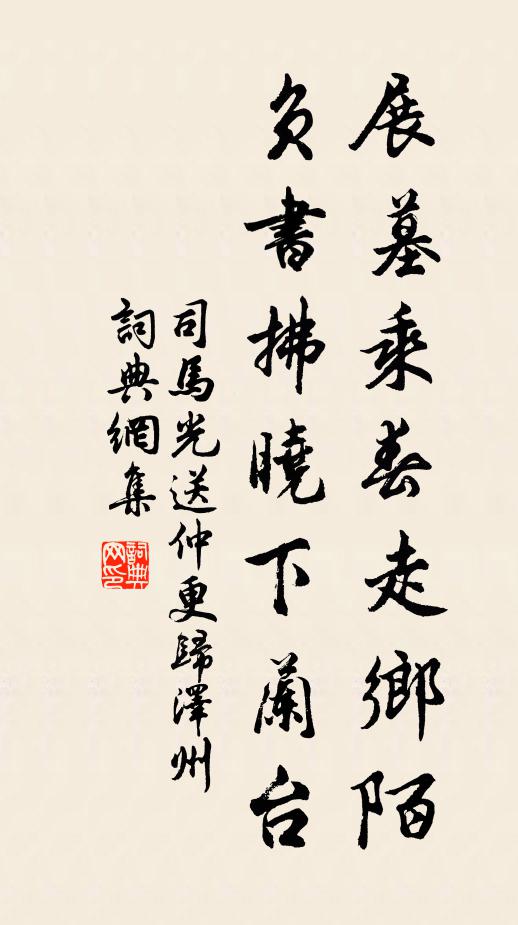 展墓乘春走鄉陌
負書拂曉下蘭台
司馬光送仲更歸澤州
詞典網集
詞典网印